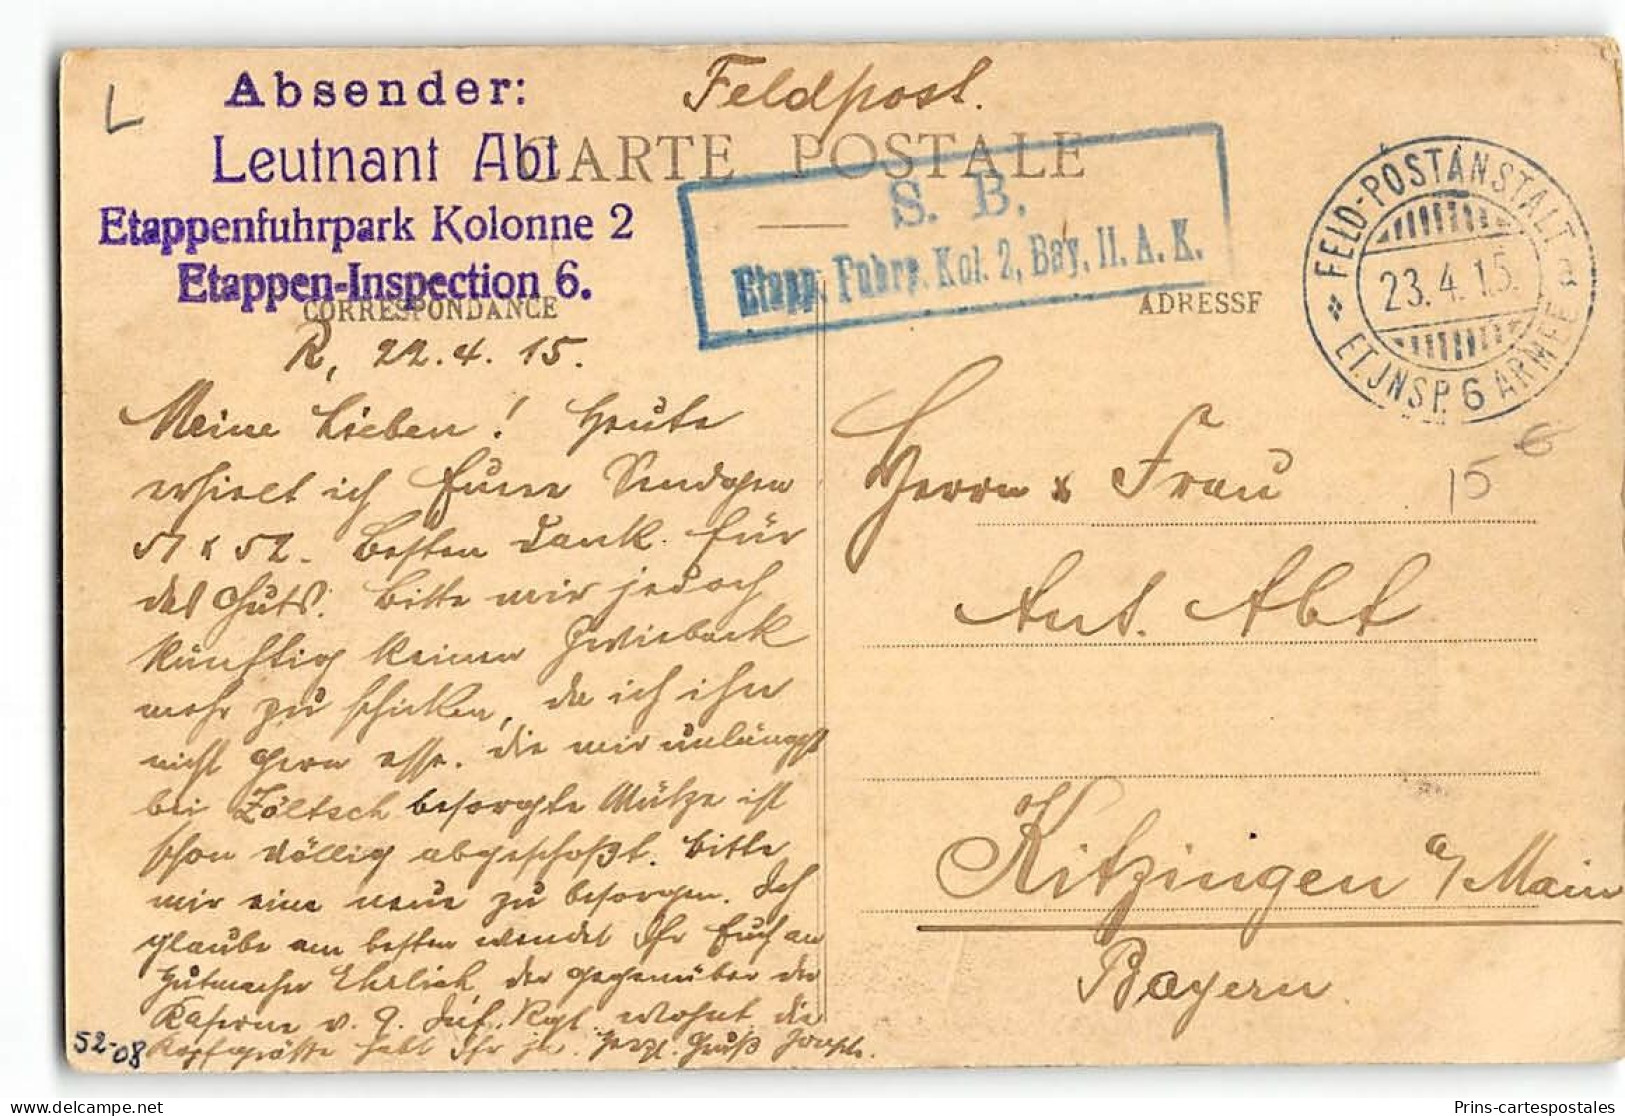 L
Absender:
Leutnant Abt
Etappenfuhrpark Kolonne 2
Etappen-Inspection 6.
Feldpost.
CARTE POSTALE
S. B.
Etapp. Fuhrp. Kol. 2, Bay. II. A. K.
FELD-POSTANSTALT a
23.4.15.
ET. JNSP. 6 ARMEE
CORRESPONDANCE
ADRESSE
R, 22.4.15.
Meine Lieben! Heute
erhielt ich Eure Sendgen
51 & 52. Besten Dank für
das Gute. Bitte mir jedoch
künftig keinen Zwieback
mehr zu schicken, da ich ihn
nicht gern esse. Die mir unlängst
bei Zöltsch besorgte Mütze ist
schon völlig abgeschoßt. Bitte
mir eine neue zu besorgen. Ich
glaube am besten wendet Ihr Euch an
Hutmacher Ehrlich der gegenüber der
Kaserne v. 9. Inf. Rgt. wohnt die
Kopfgröße habt Ihr ja. Herzl. Gruß Joseph.
Herrn & Frau
Ant. Abt
Kitzingen a/Main
Bayern
15
6
52-08
Prins-cartespostales